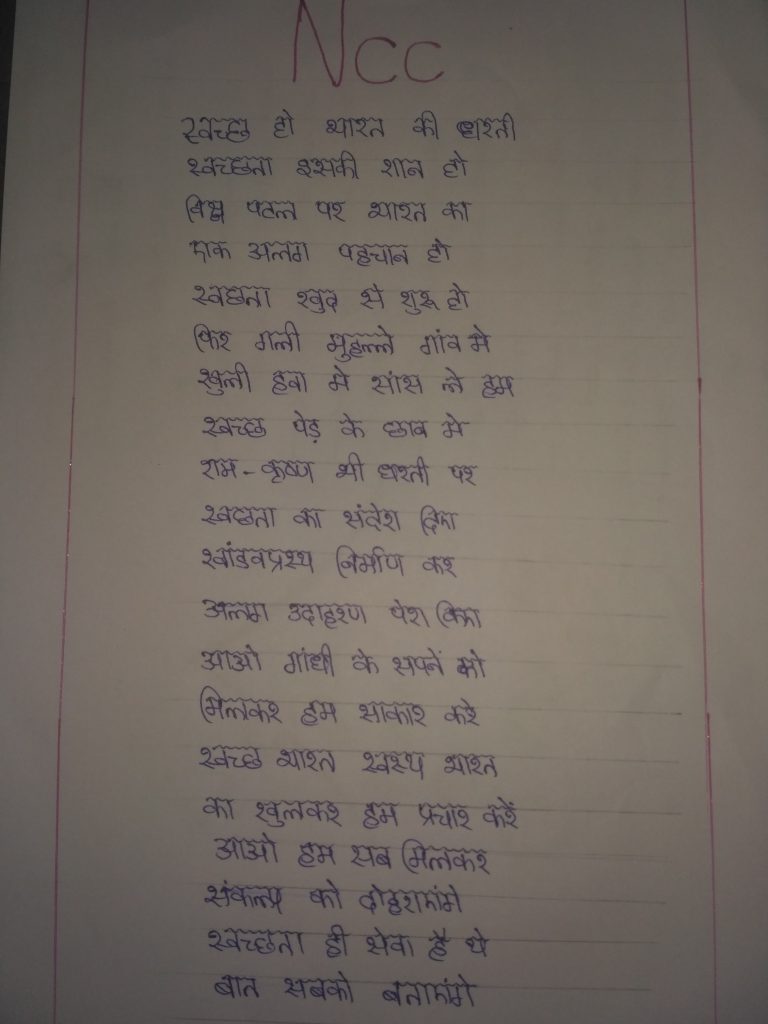 NCC
स्वच्छ हो भारत की धरती
स्वच्छता इसकी शान हो
विश्व पटल पर भारत का
एक अलग पहचान हो
स्वछता खुद से शुरू हो
फिर गली मुहल्ले गांव मे
खुली हवा मे सांस ले हम
स्वच्छ पेड़ के छाव मे
राम - कृष्ण भी धरती पर
स्वछता का संदेश दिया
खांडवप्रस्थ निर्माण कर
अलग उदाहरण पेश किया
आओ गांधी के सपनें को
मिलकर हम साकार करे
स्वच्छ भारत स्वस्थ भारत
का खुलकर हम प्रचार करें
आओ हम सब मिलकर
संकल्प को दोहराएंगे
स्वच्छता ही सेवा है ये
बात सबको बताएंगे